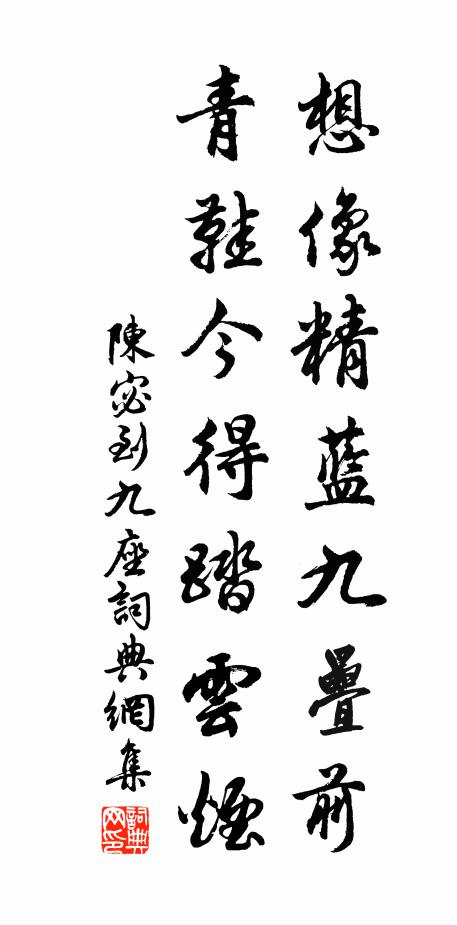 想像精藍九疊前
青鞋今得踏雲煙
陳宓到九座詞典網集
詞典网印